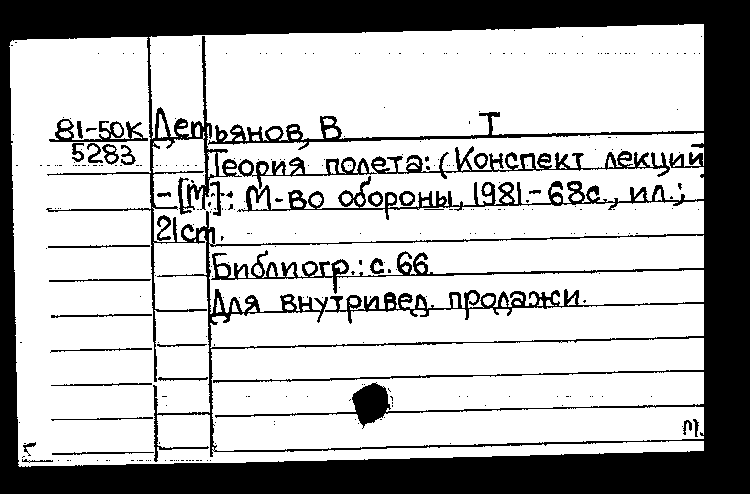 81-50К Демьянов, В Т
5283 Теория полета: (Конспект лекций
- [М.]: М-во обороны, 1981.- 68с., ил.;
21см.
Библиогр.: с. 66
Для внутривед. продажи.
м.